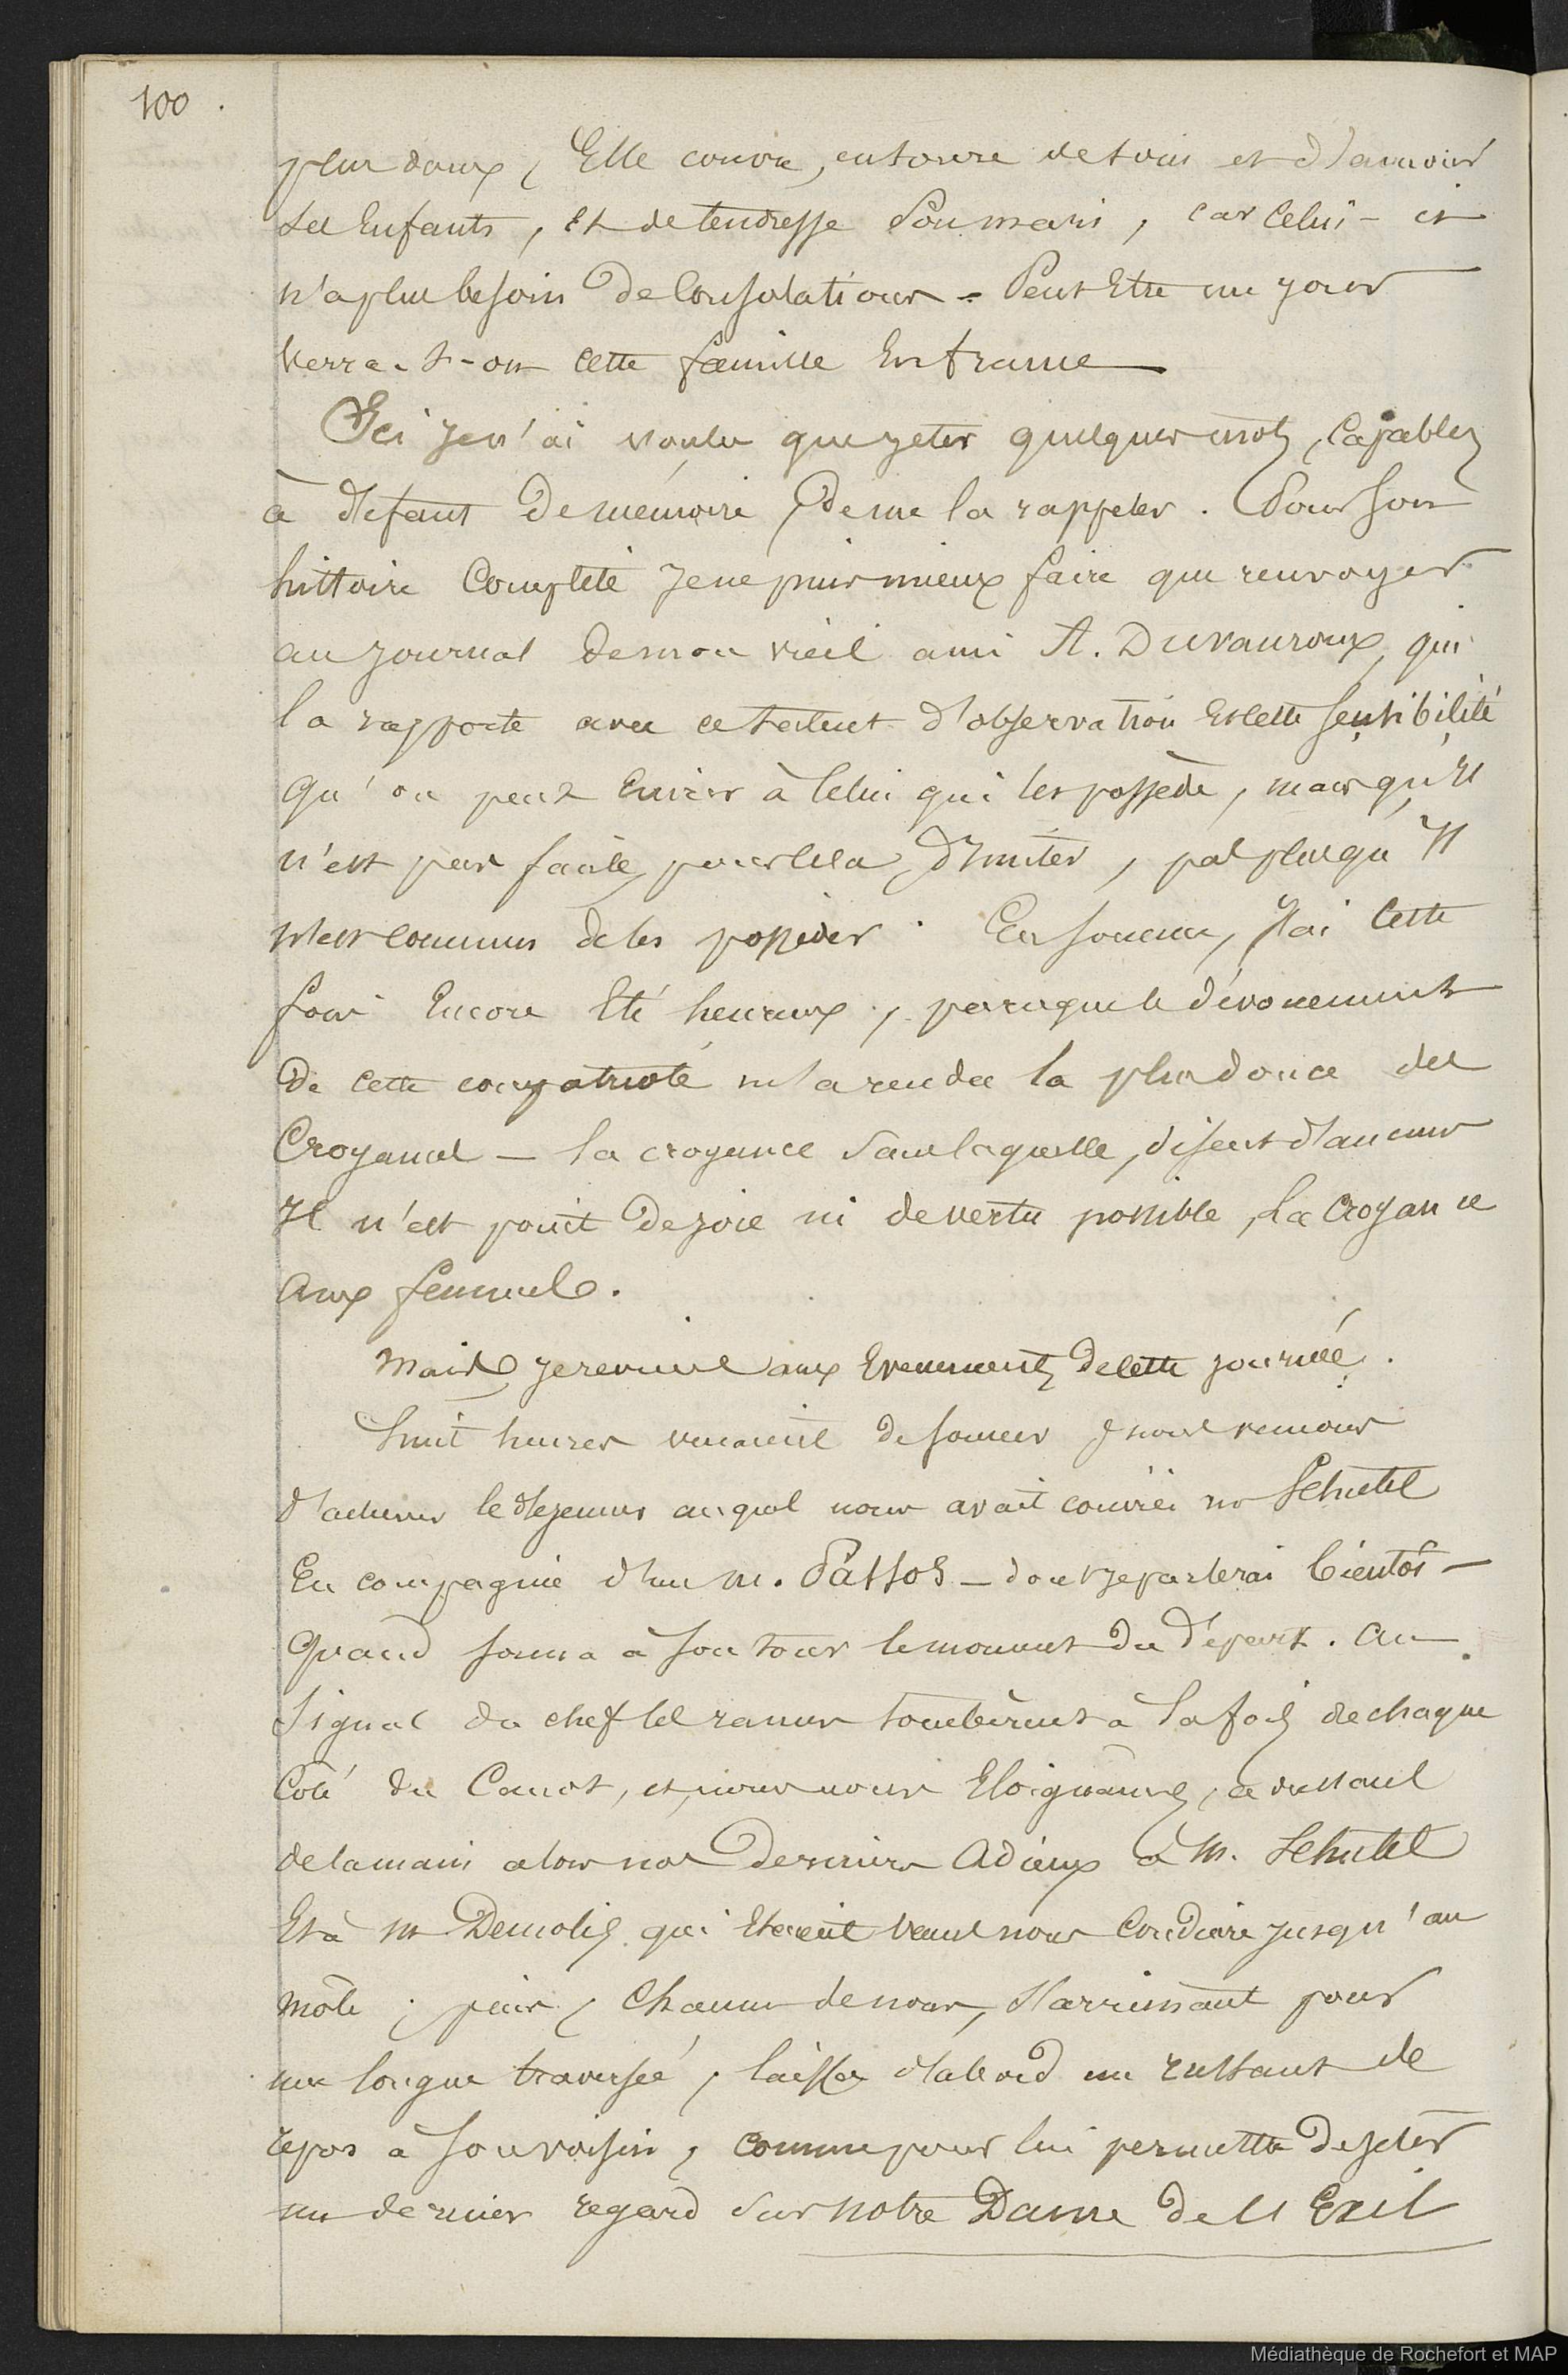 100.
plus doux, Elle couvre, entoure de soin et d'amour
ses Enfants, Et de tendresse son mari, car celui-ci
n'a plus besoin de Consolations - Peut Etre un jour
verra-t-on cette famille En france —
Ici je n'ai voulu que jeter quelques mots, Capables
à défaut de mémoire, de me la rappeler. Pour son
histoire Complète je ne puis mieux faire que renvoyer
au journal de mon vieil ami A. Duvauroux, qui
la rapporte avec ce talent d'observation et cette sensibilité
qu'on peut Envier à celui qui les possède, mais qu'il
n'est pas facile, pour cela, d'Imiter, pas plus qu'Il
n'est commun de les posséder. En somme, j'ai Cette
fois Encore Eté heureux, parceque le dévouement
de cette compatriote m'a rendu la plus douce des
Croyances — la croyance sans laquelle, disent d'aucuns
Il n'est point de joie ni de vertu possible, la Croyance
aux femmes.
Mais je reviens aux Evenements de cette journée.
huit heures venaient de sonner & nous venions
d'achever le déjeuner auquel nous avait convié mr Schutel
En compagnie d'un M. Passos — dont je parlerai bientôt —
quand sonna à son tour le moment du départ. Au
signal du chef les rames tombèrent à la fois de chaque
Coté du Canot, et, nous nous Eloignâmes, adressant
de la main alors nos derniers Adieux à M. Schutel
Et à Mr Demolis qui Etaient venus nous Conduire jusqu'au
môle ; puis, Chacun de nous, s'arrimant pour
une longue traversée, laissa d'abord un instant de
repos à son voisin, comme pour lui permettre de jeter
un dernier regard sur Notre Dame de l'Exil
Médiathèque de Rochefort et MAP